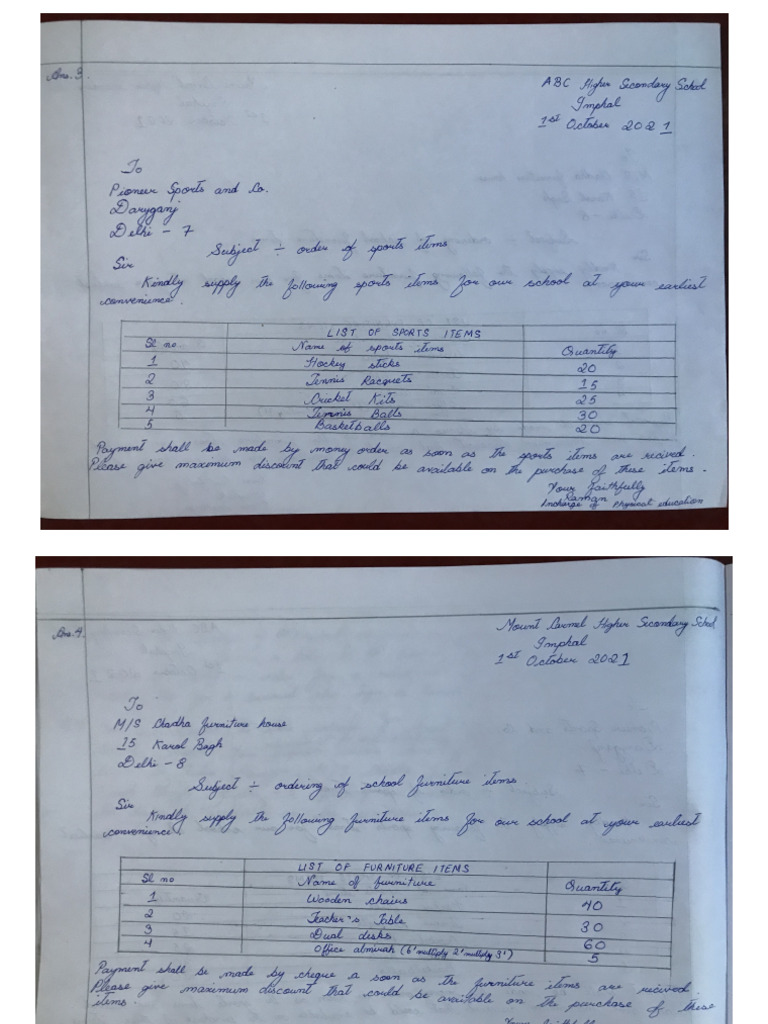 Ans. 3.
ABC Higher Secondary School
Imphal
1st October 2021
To
Pioneer Sports and Co.
Daryganj
Delhi - 7
Subject ÷ order of sports items
Sir
Kindly supply the following sports items for our school at your earliest
convenience.
LIST OF SPORTS ITEMS
Sl no. Name of sports items Quantity
1 Hockey sticks 20
2 Tennis Racquets 15
3 Cricket Kits 25
4 Tennis Balls 30
5 Basketballs 20
Payment shall be made by money order as soon as the sports items are recived.
Please give maxemum discount that could be available on the purchase of these items.
Your faithfully
Raman
Incharge of Physical education
Ans. 4.
Mount Carmel Higher Secondary School
Imphal
1st October 2021
To
M/S Chadha furniture house
15 Karol Bagh
Delhi - 8
Subject ÷ ordering of school furniture items
Sir
Kindly supply the following furniture items for our school at your earliest
convenience
LIST OF FURNITURE ITEMS
Sl no Name of furniture Quantity
1 Wooden chairs 40
2 Teacher's Table 30
3 Dual disks 60
4 Office almirah (6' multiply 2' multiply 3') 5
Payment shall be made by cheque a soon as the furniture items are recived.
Please give maximum discount that could be available on the purchase of these
items.
Your faithfully